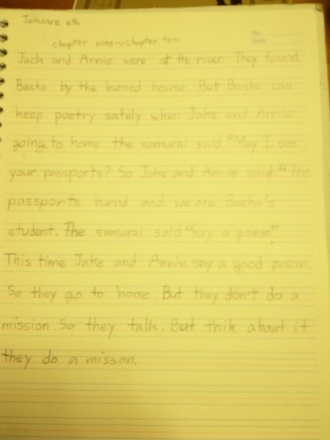 Januare 6th
chapter nine~chapter ten
Jack and Annie were at the river. They found
Basho by the burned house. But Basho can
keep poetry safely. when Jake and Annie
going to home. the samurai said "May I see
your passports? So Jake and Annie said "the
passports burnd and we are Basho's
student. The samurai said "say a poem".
This time Jake and Annie say a good poem.
So they go to home. But they don't do a
mission. So they talk. But thik about it
they do a misson.